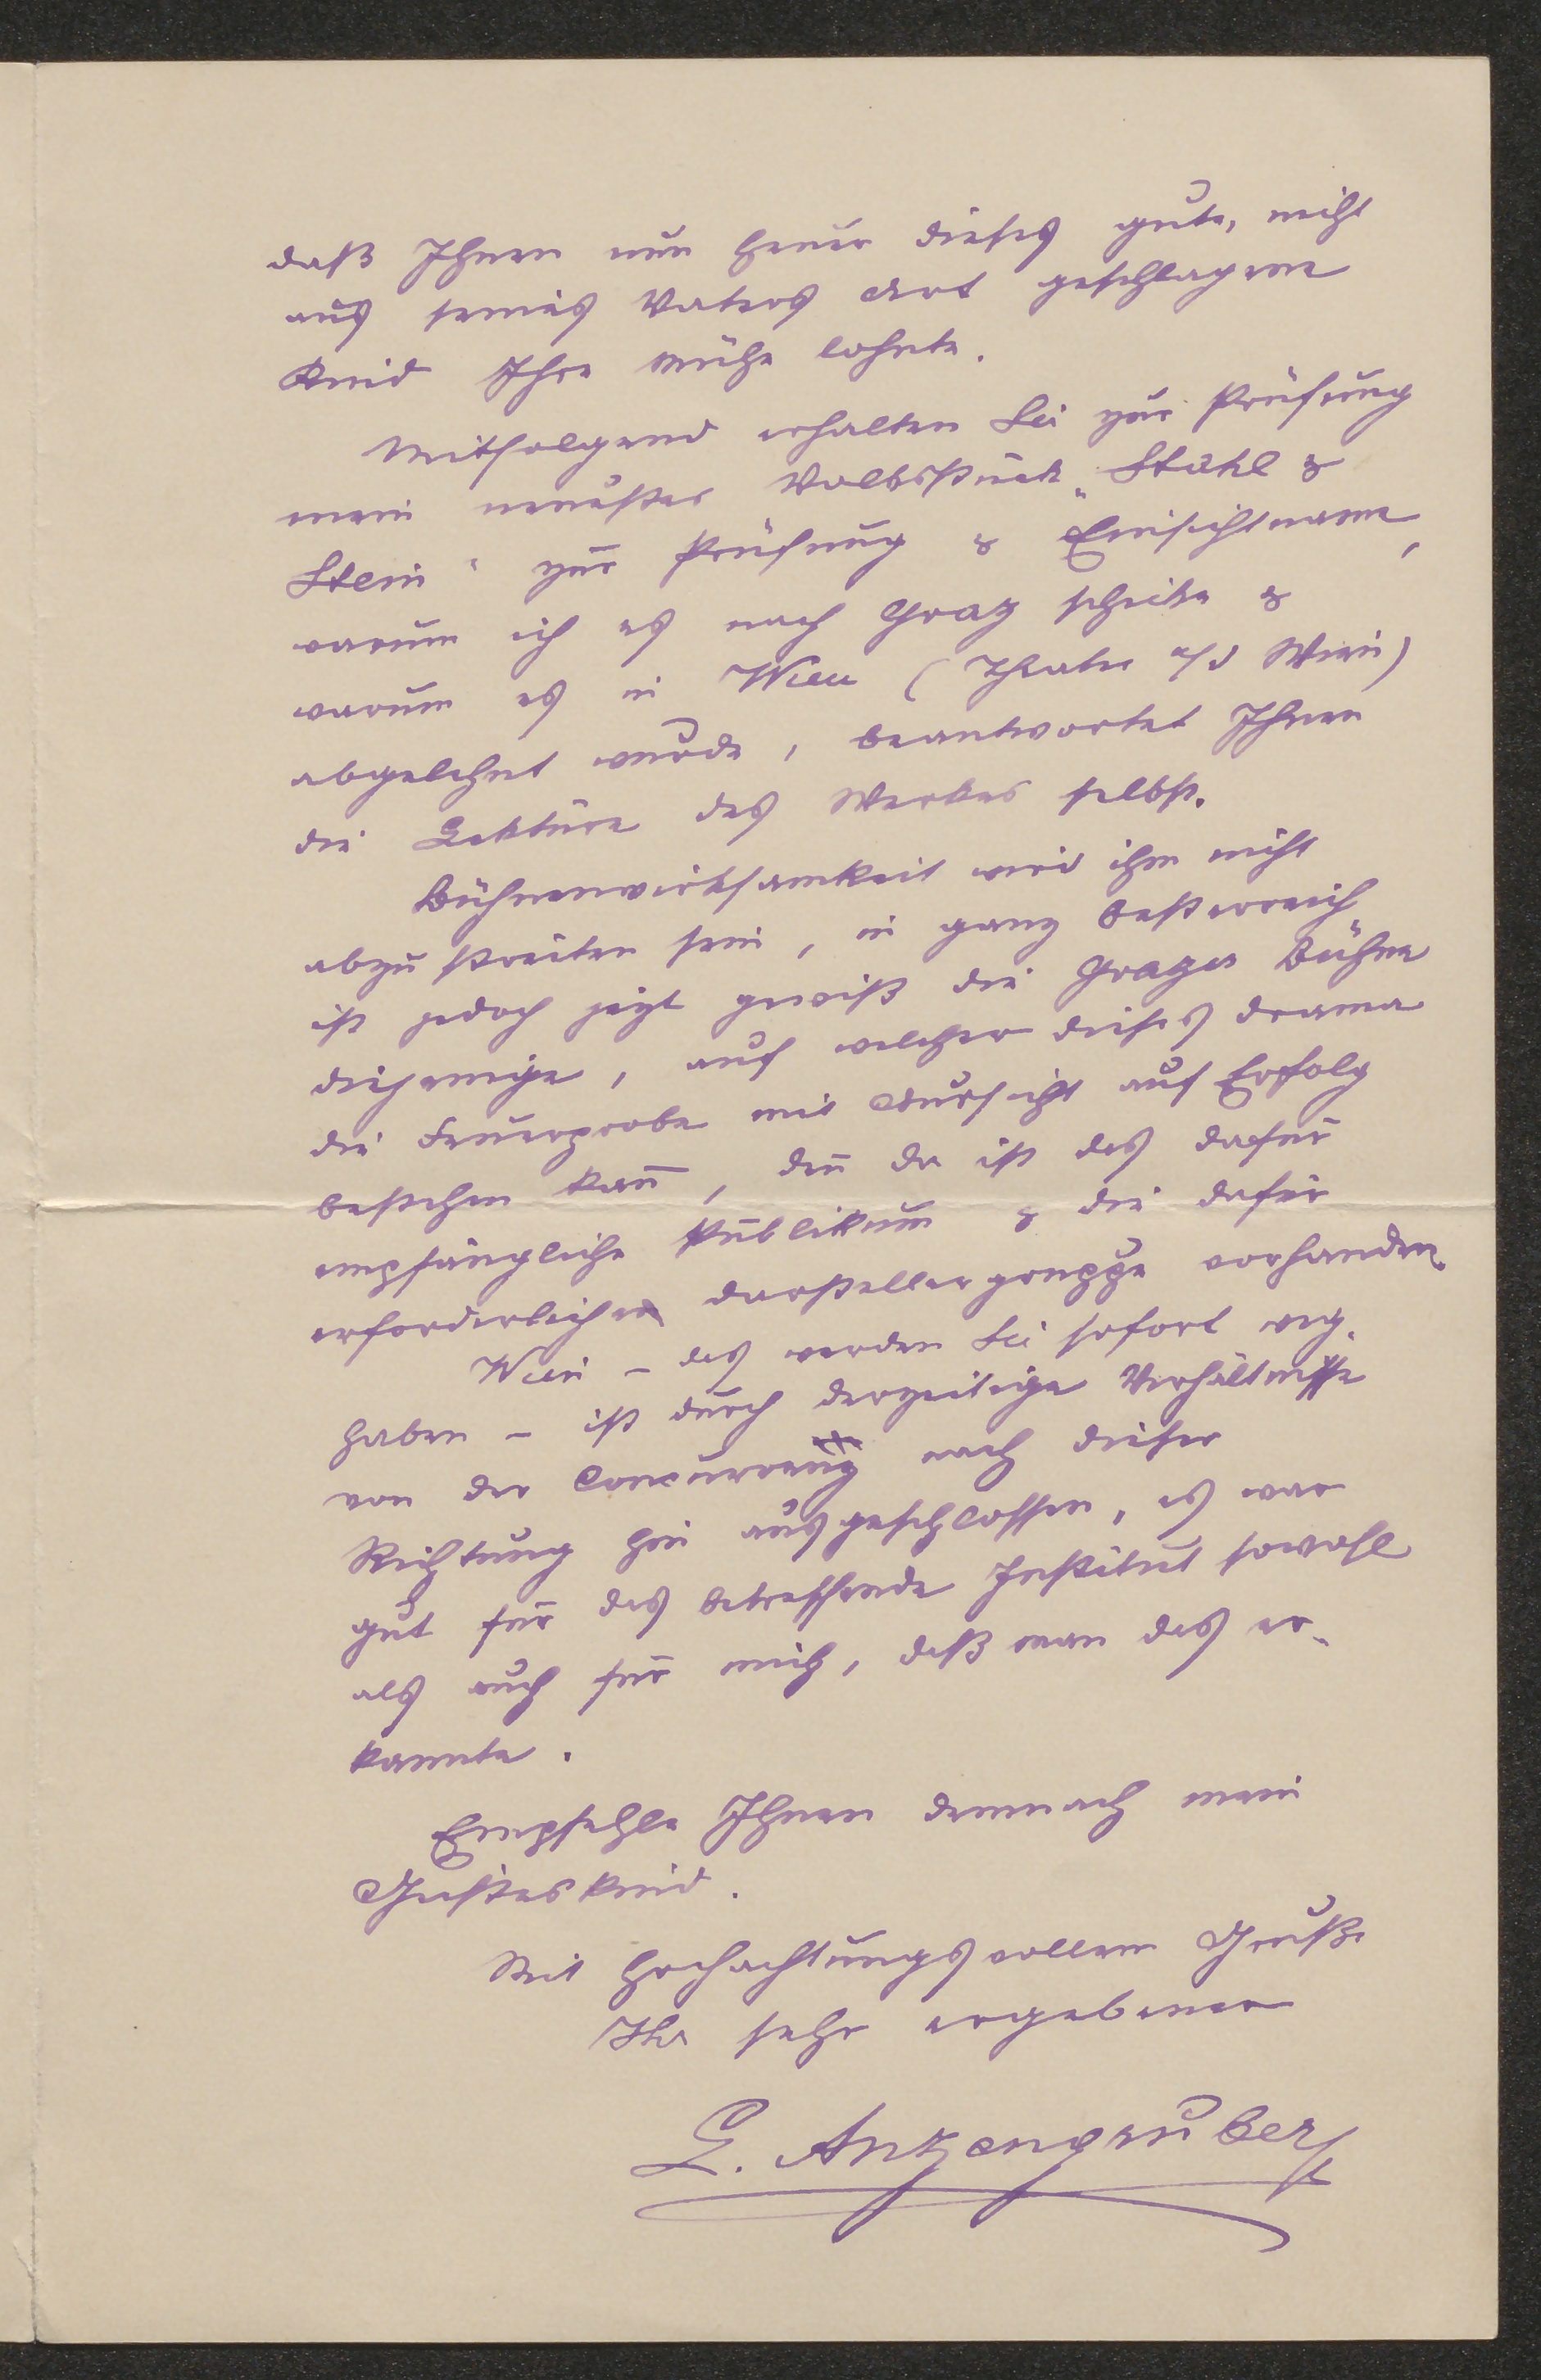 daß Ihnen nun heuer dieses gute, nicht
aus seines Vaters Art geschlagene
Kind Ihre Mühe lohnte.
Mitfolgend erhalten Sie zur Prüfung
mein neuestes Volksstück „Stahl &
Stein“ zur Prüfung & Einsichtname,
warum ich es nach Graz schicke &
warum es in Wien (Theater a/d Wien)
abgelehnt wurde, beantwortet Ihnen
die Lektüre des Werkes selbst.
Bühnenwirksamkeit wird ihm nicht
abzustreiten sein, in ganz Oesterreich
ist jedoch jezt gewiß die Grazer Bühne
diejenige, auf welcher dieses Drama
die Feuerprobe mit Aussicht auf Erfolg
bestehen kan̄, den̄ da ist das dafür
empfängliche Publikum & die dafür
erforderliche Darstellergruppe vorhanden.
Wien – das werden Sie sofort weg
haben – ist durch derzeitige Verhältnisse
von der Concurrenz nach dieser
Richtung hin ausgeschlossen, es war
gut für das betreffende Institut sowohl
als auch für mich, daß man das er-
kannte.
Empfehle Ihnen demnach mein
Geisteskind.
Mit hochachtungsvollem Gruße
Ihr sehr ergebener
L. Anzengruber